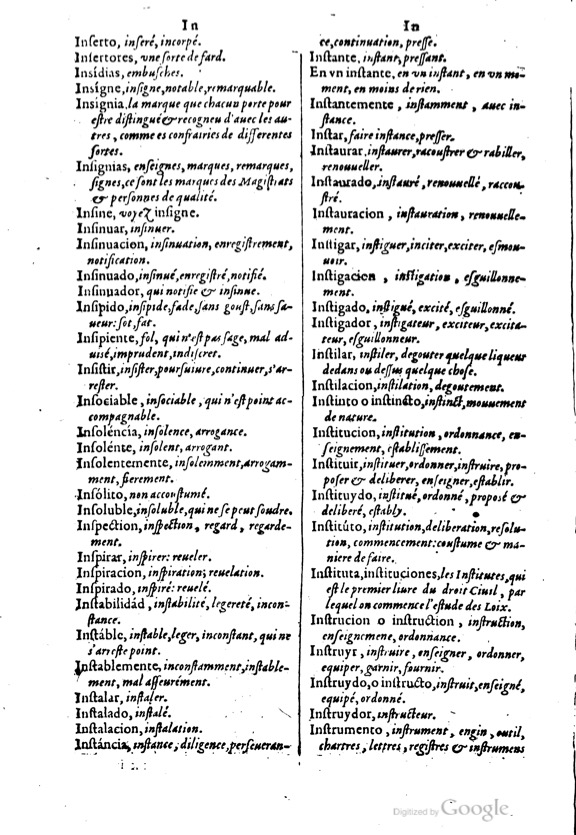 In
Inserto, inseré, incorpé.
Insertores, vne sorte de fard.
Insídias, embusches.
Insigne, insigne, notable, remarquable.
Insignia, la marque que chacun porte pour
estre distingué & recogneu d'auec les au-
tres, comme es confrairies de differentes
sortes.
Insignias, enseignes, marques, remarques,
signes, ce sont les marques des Magistrats
& personnes de qualité.
Insine, voyez insigne.
Insinuar, insinuer.
Insinuacion, insinuation, enregistrement,
notification.
Insinuado, insinué, enregistré, notifié.
Insinuador, qui notifie & insinue.
Insipido, insipide, fade, sans goust, sans sa-
ueur: sot, fat.
Insipiente, fol, qui n'est pas sage, mal ad-
uisé, imprudent, indiscret.
Insistir, insister, poursuiure, continuer, s'ar-
rester.
Insociable, insociable, qui n'est point ac-
compagnable.
Insoléncia, insolence, arrogance.
Insolénte, insolent, arrogant.
Insolentemente, insolemment, arrogam-
ment, fierement.
Insólito, non accoustumé.
Insoluble, insoluble, qui ne se peut soudre.
Inspection, inspection, regard, regarde-
ment.
Inspirar, inspirer: reueler.
Inspiracion, inspiration; reuelation.
Inspirado, inspiré: reuelé.
Instabilidád, instabilité, legereté, incon-
stance.
Instáble, instable, leger, inconstant, qui ne
s'arreste point.
Instablemente, inconstamment, instable-
ment, mal asseurément.
Instalar, instaler.
Instalado, instalé.
Instalacion, instalation.
Instáncia, instance, diligence, perseueran-
In
ce, continuation, presse.
Instante, instant, pressant.
En vn instante, en vn instant, en vn mo-
ment, en moins de rien.
Instantemente, instamment, auec in-
stance.
Instar, faire instance, presser.
Instaurar, instaurer, racoustrer & rabiller,
renouueller.
Instaurado, instauré, renouuellé, raccou-
stré.
Instauracion, instauration, renouuelle-
ment.
Instigar, instiguer, inciter, exciter, esmou-
uoir.
Instigacion, instigation, esguillonne-
ment.
Instigado, instigué, excité, esguillonné.
Instigador, instigateur, exciteur, excita-
teur, esguillonneur.
Instilar, instiler, degouter quelque liqueur
dedans ou dessus quelque chose.
Instilacion, instilation, degoutement.
Instinto o instincto, instinct, mouuement
de nature.
Institucion, institution, ordonnance, en-
seignement, establissement.
Instituir, instituer, ordonner, instruire, pro-
poser & deliberer, enseigner, establir.
Instituydo, institué, ordonné, proposé &
deliberé, estably.
Institúto, institution, deliberation, resolu-
tion, commencement: coustume & ma-
niere de faire.
Instituta, instituciones, les Institutes, qui
est le premier liure du droit Ciuil, par
lequel on commence l'estude des Loix.
Instrucion o instruction, instruction,
enseignemene, ordonnance.
Instruyr, instruire, enseigner, ordonner,
equiper, garnir, fournir.
Instruydo, o instructo, instruit, enseigné,
equipé, ordonné.
Instruydor, instructeur.
Instrumento, instrument, engin, outil,
chartres, lettres, registres & instrumens
Digitized by Google